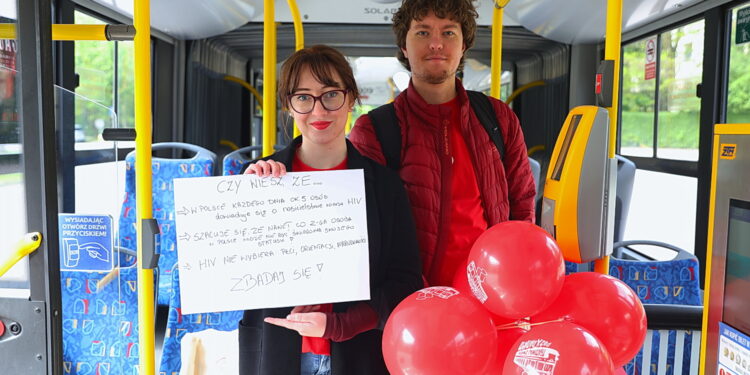 SOLAR
CZY WIESZ, ŻE...
→ W POLSCE KAŻDEGO DNIA OK. 5 OSÓB
dowiaduje się o nosicielstwie wirusa HIV
→ SZACUJE SIĘ, ŻE NAWET CO 2-GA OSOBA
W POLSCE MOŻE NIE BYĆ ŚWIADOMA SWOJEGO
STATUSU !
→ HIV NIE WYBIERA PŁCI, ORIENTACJI,
ZBADAJ SIĘ !
WYSIADAJĄC
OTWÓRZ DRZWI
PRZYCISKIEM!